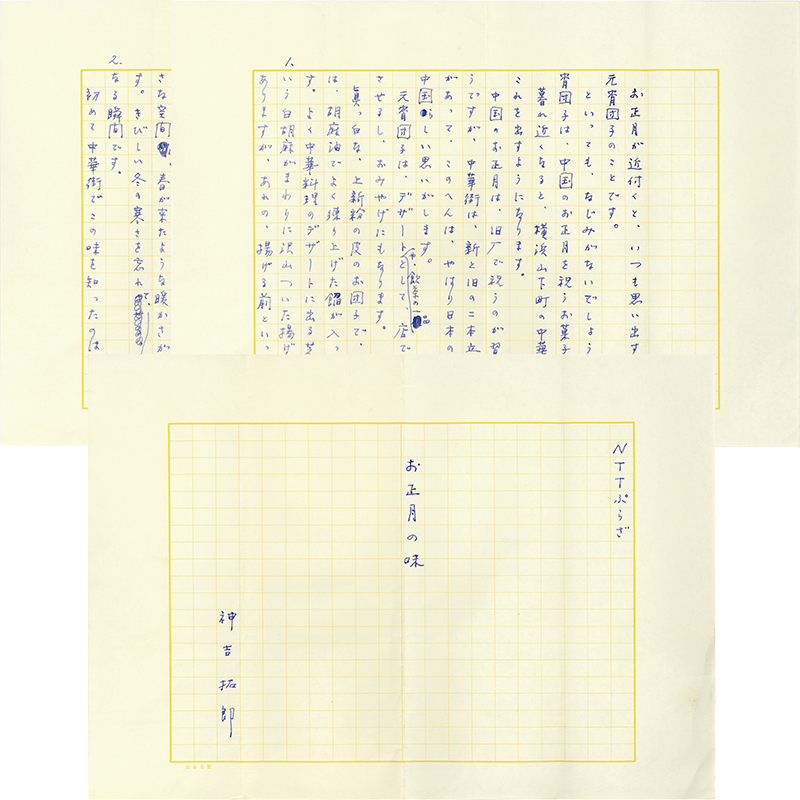 NTTぷらざ
お正月の味
神吉拓郎
1.
お正月が近付くと、いつも思い出す
元宵団子のことです。
といっても、なじみがないでしょう
宵団子は、中国のお正月を祝うお菓子
暮れ近くなると、横浜山下町の中華
これを出すようになります。
中国のお正月は、旧广で祝うのが習
うですが、中華街は、新と旧の二本立
があって、このへんは、やはり日本の
中国らしい思いがします。
元宵団子は、デザートとして、店で
や、飲茶の一品
させるし、おみやげにもなります。
眞っ白な、上新粉の皮のお団子で、
は、胡麻油でよく練り上げた餡が入っ
す。よく中華料理のデザートに出る芝
いう白胡麻がまわりに沢山ついた揚げ
ありますが、あれの、揚げる前といっ
2.
さな空間、春が来たような暖かさが
す。きびしい冬の寒さを忘れて、
なる瞬間です。
初めて中華街でこの味を知ったのは